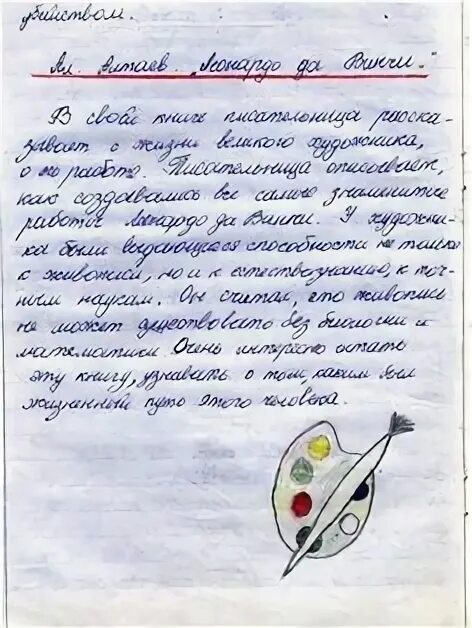 убийством.
Ал. Алтаев. "Леонардо да Винчи."
В своей книге писательница расска-
зывает о жизни великого художника,
о его работе. Писательница описывает,
как создавались все самые знаменитые
работы Леонардо да Винчи. У художни-
ка были выдающиеся способности не только
к живописи, но и к естествознанию, к точ-
ным наукам. Он считал, что живопись
не может существовать без биологии и
математики. Очень интересно читать
эту книгу, узнавать о том, каким был
жизненный путь этого человека.